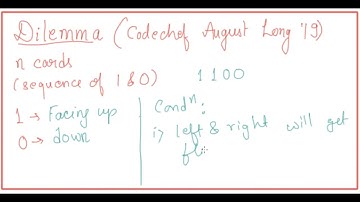 Dilemma (Codechef August Long '19)
n cards
(sequence of 1 & 0)
1 1 0 0
1 → Facing up
0 → down
Condⁿ:
i) left & right will get
fli